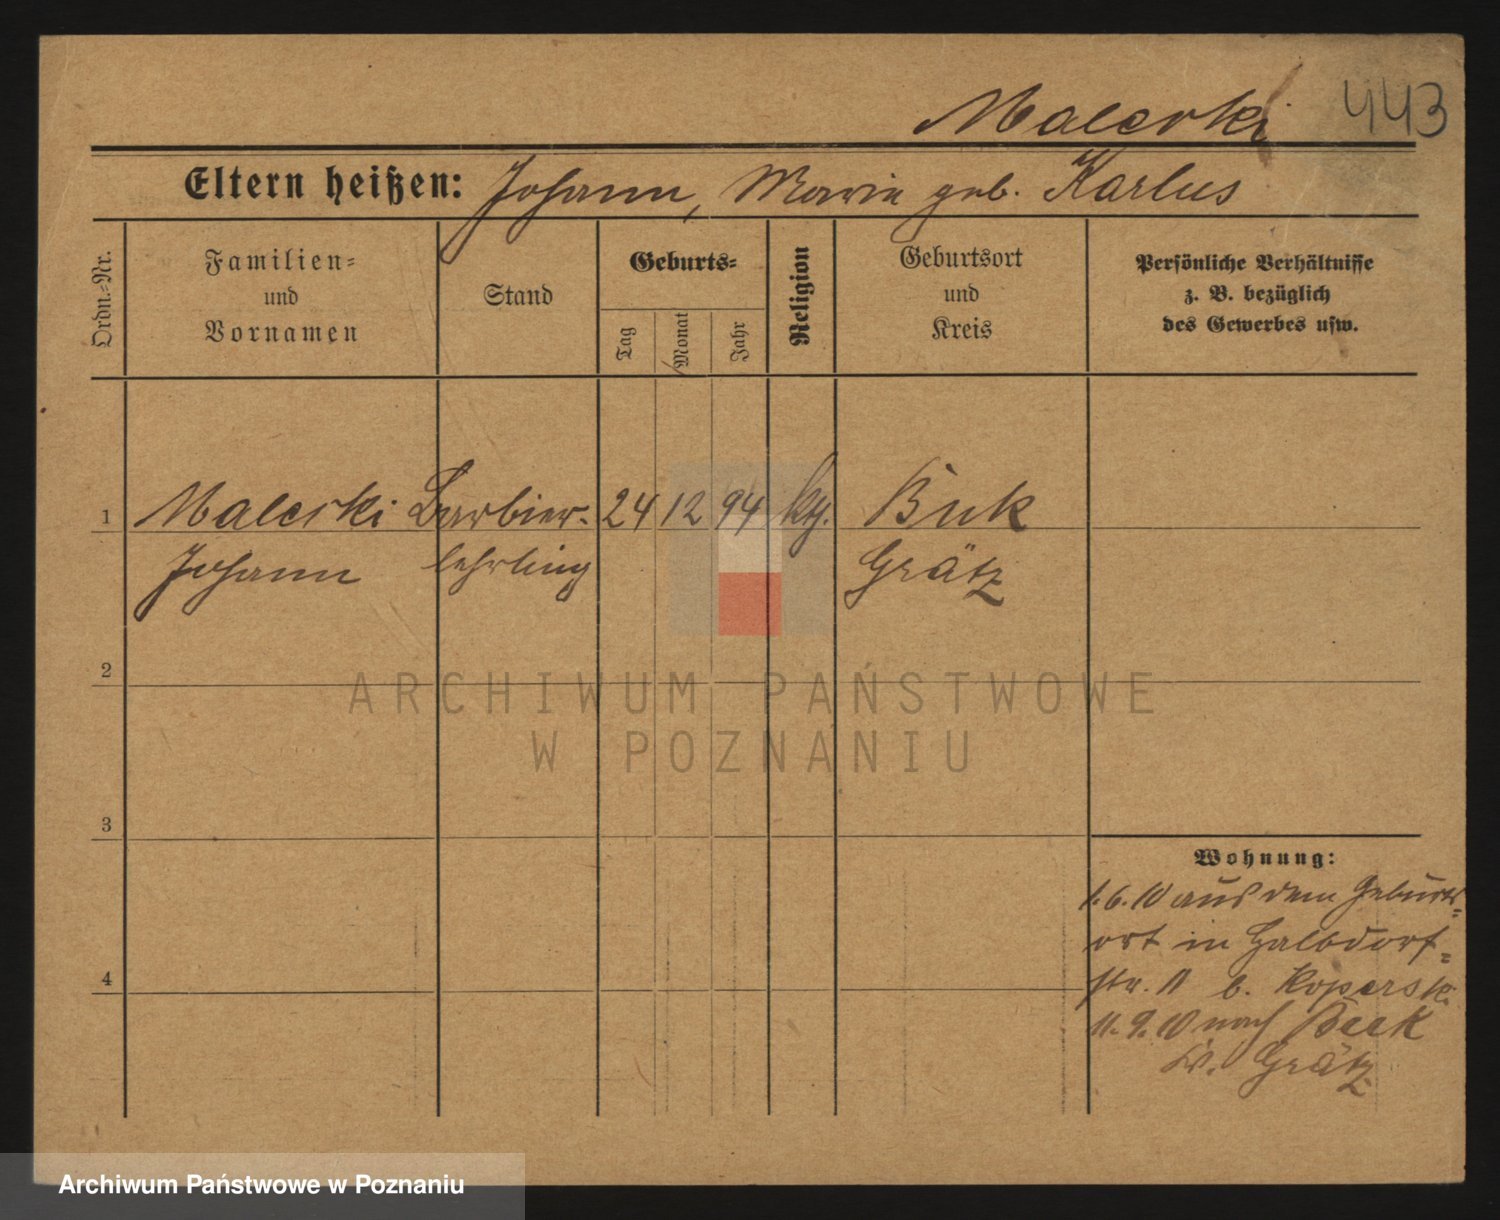 Malerski 443
Eltern heißen: Johann, Maria geb. Karlus
Ordn.-Nr.
Familien-
und
Vornamen
Stand
Geburts-
Tag
Monat
Jahr
Religion
Geburtsort
und
Kreis
Persönliche Verhältnisse
z. B. bezüglich
des Gewerbes usw.
1 Malerski Barbier- 24 12 94 kth. Buk
Johann lehrling Grätz
2
ARCHIWUM PAŃSTWOWE
W POZNANIU
3
Wohnung:
1.6.10 aus dem Geburts-
ort in Halbdorf-
4
str. 11 b. Koperski
11.9.10 nach Buk
Kr. Grätz
Archiwum Państwowe w Poznaniu